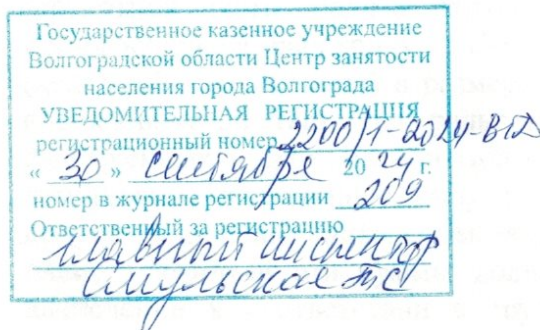 Государственное казенное учреждение
Волгоградской области Центр занятости
населения города Волгограда
УВЕДОМИТЕЛЬНАЯ РЕГИСТРАЦИЯ
регистрационный номер 2200/1-2024-ВГД
« 30 » сентября 20 24 г.
номер в журнале регистрации 209
Ответственный за регистрацию
главный инспектор